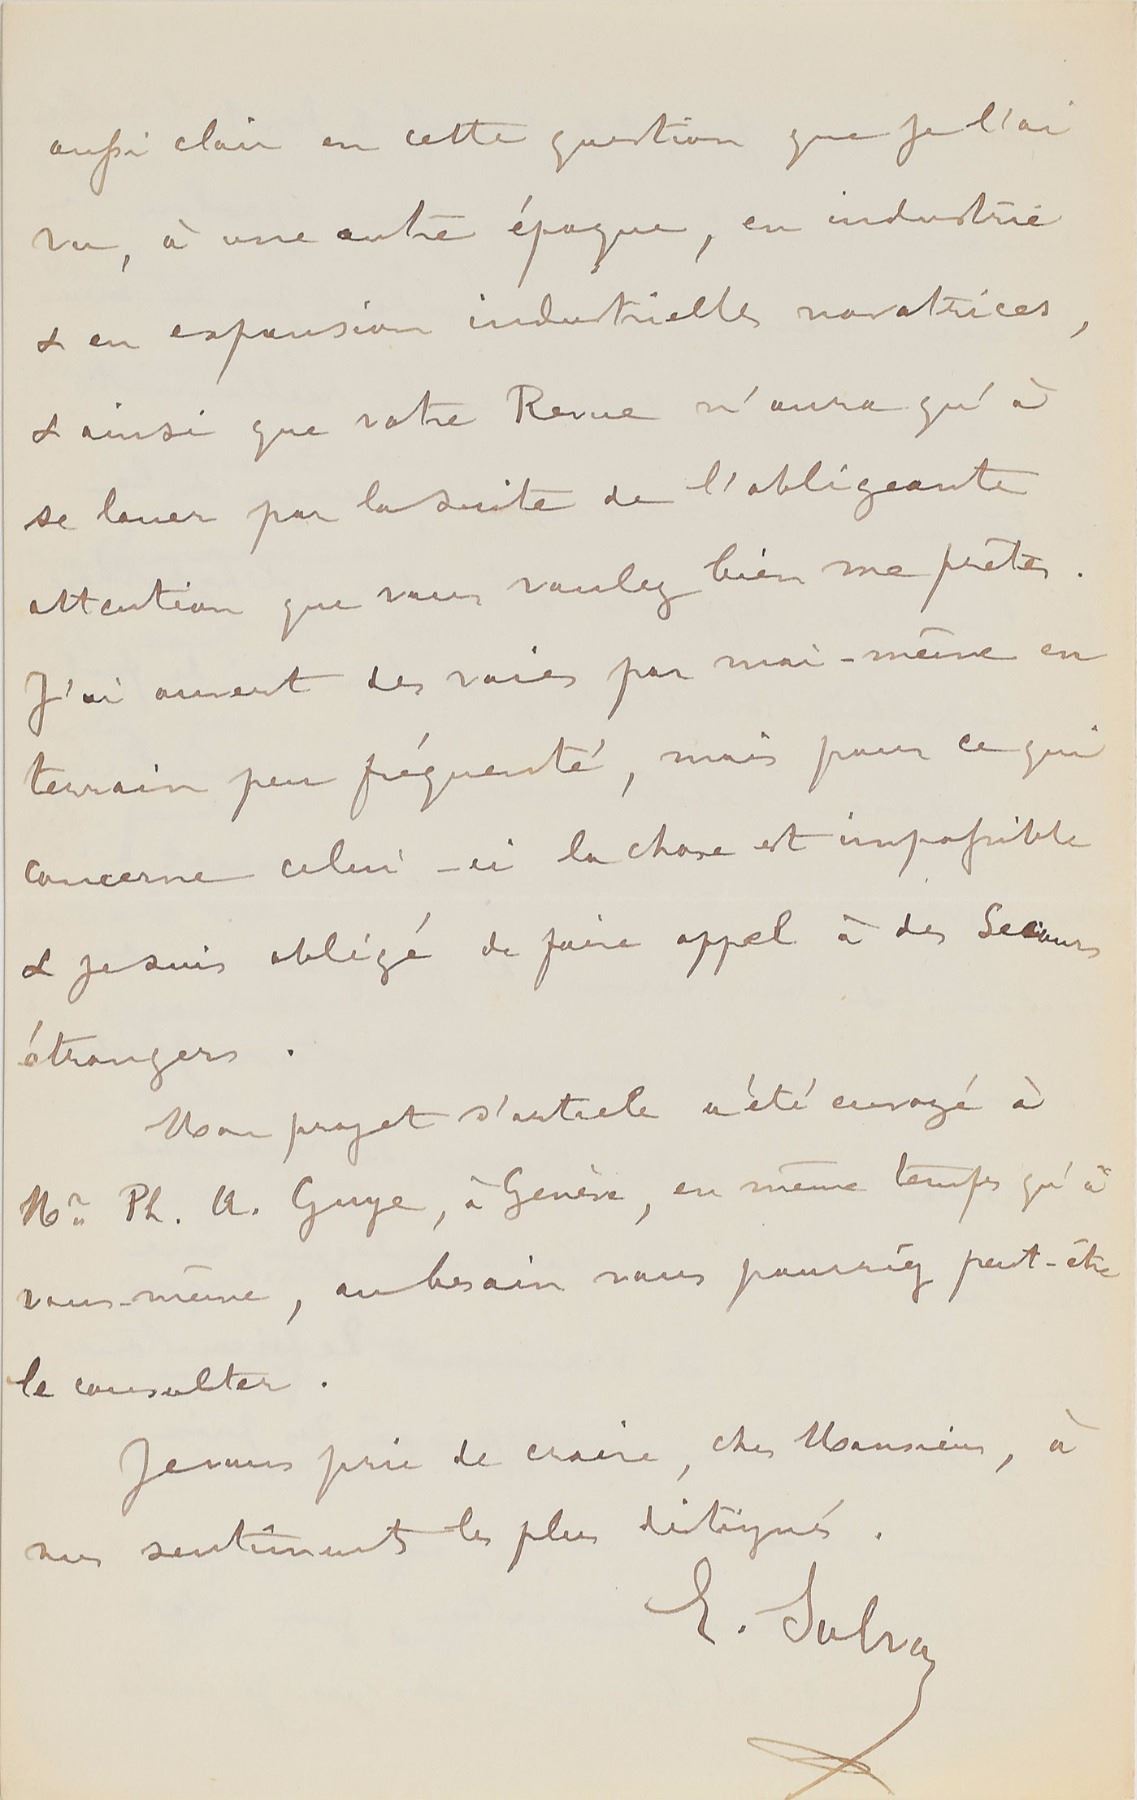 aussi clair en cette question que je l'ai
vu, à une autre époque, en industrie
& en expansion industrielles novatrices,
& ainsi que votre Revue n'aura qu'à
se louer par la suite de l'obligeante
attention que vous voulez bien me prêter.
J'ai ouvert des voies par moi-même en
terrain peu fréquenté, mais pour ce qui
concerne celui-ci la chose est impossible
& je suis obligé de faire appel à des Secours
étrangers.
Mon projet d'article a été envoyé à
Mr. Ph. A. Guye, à Genève, en même temps qu'à
vous-même, au besoin vous pourriez peut-être
le consulter.
Je vous prie de croire, cher Monsieur, à
mes sentiments les plus distingués.
E. Solvay